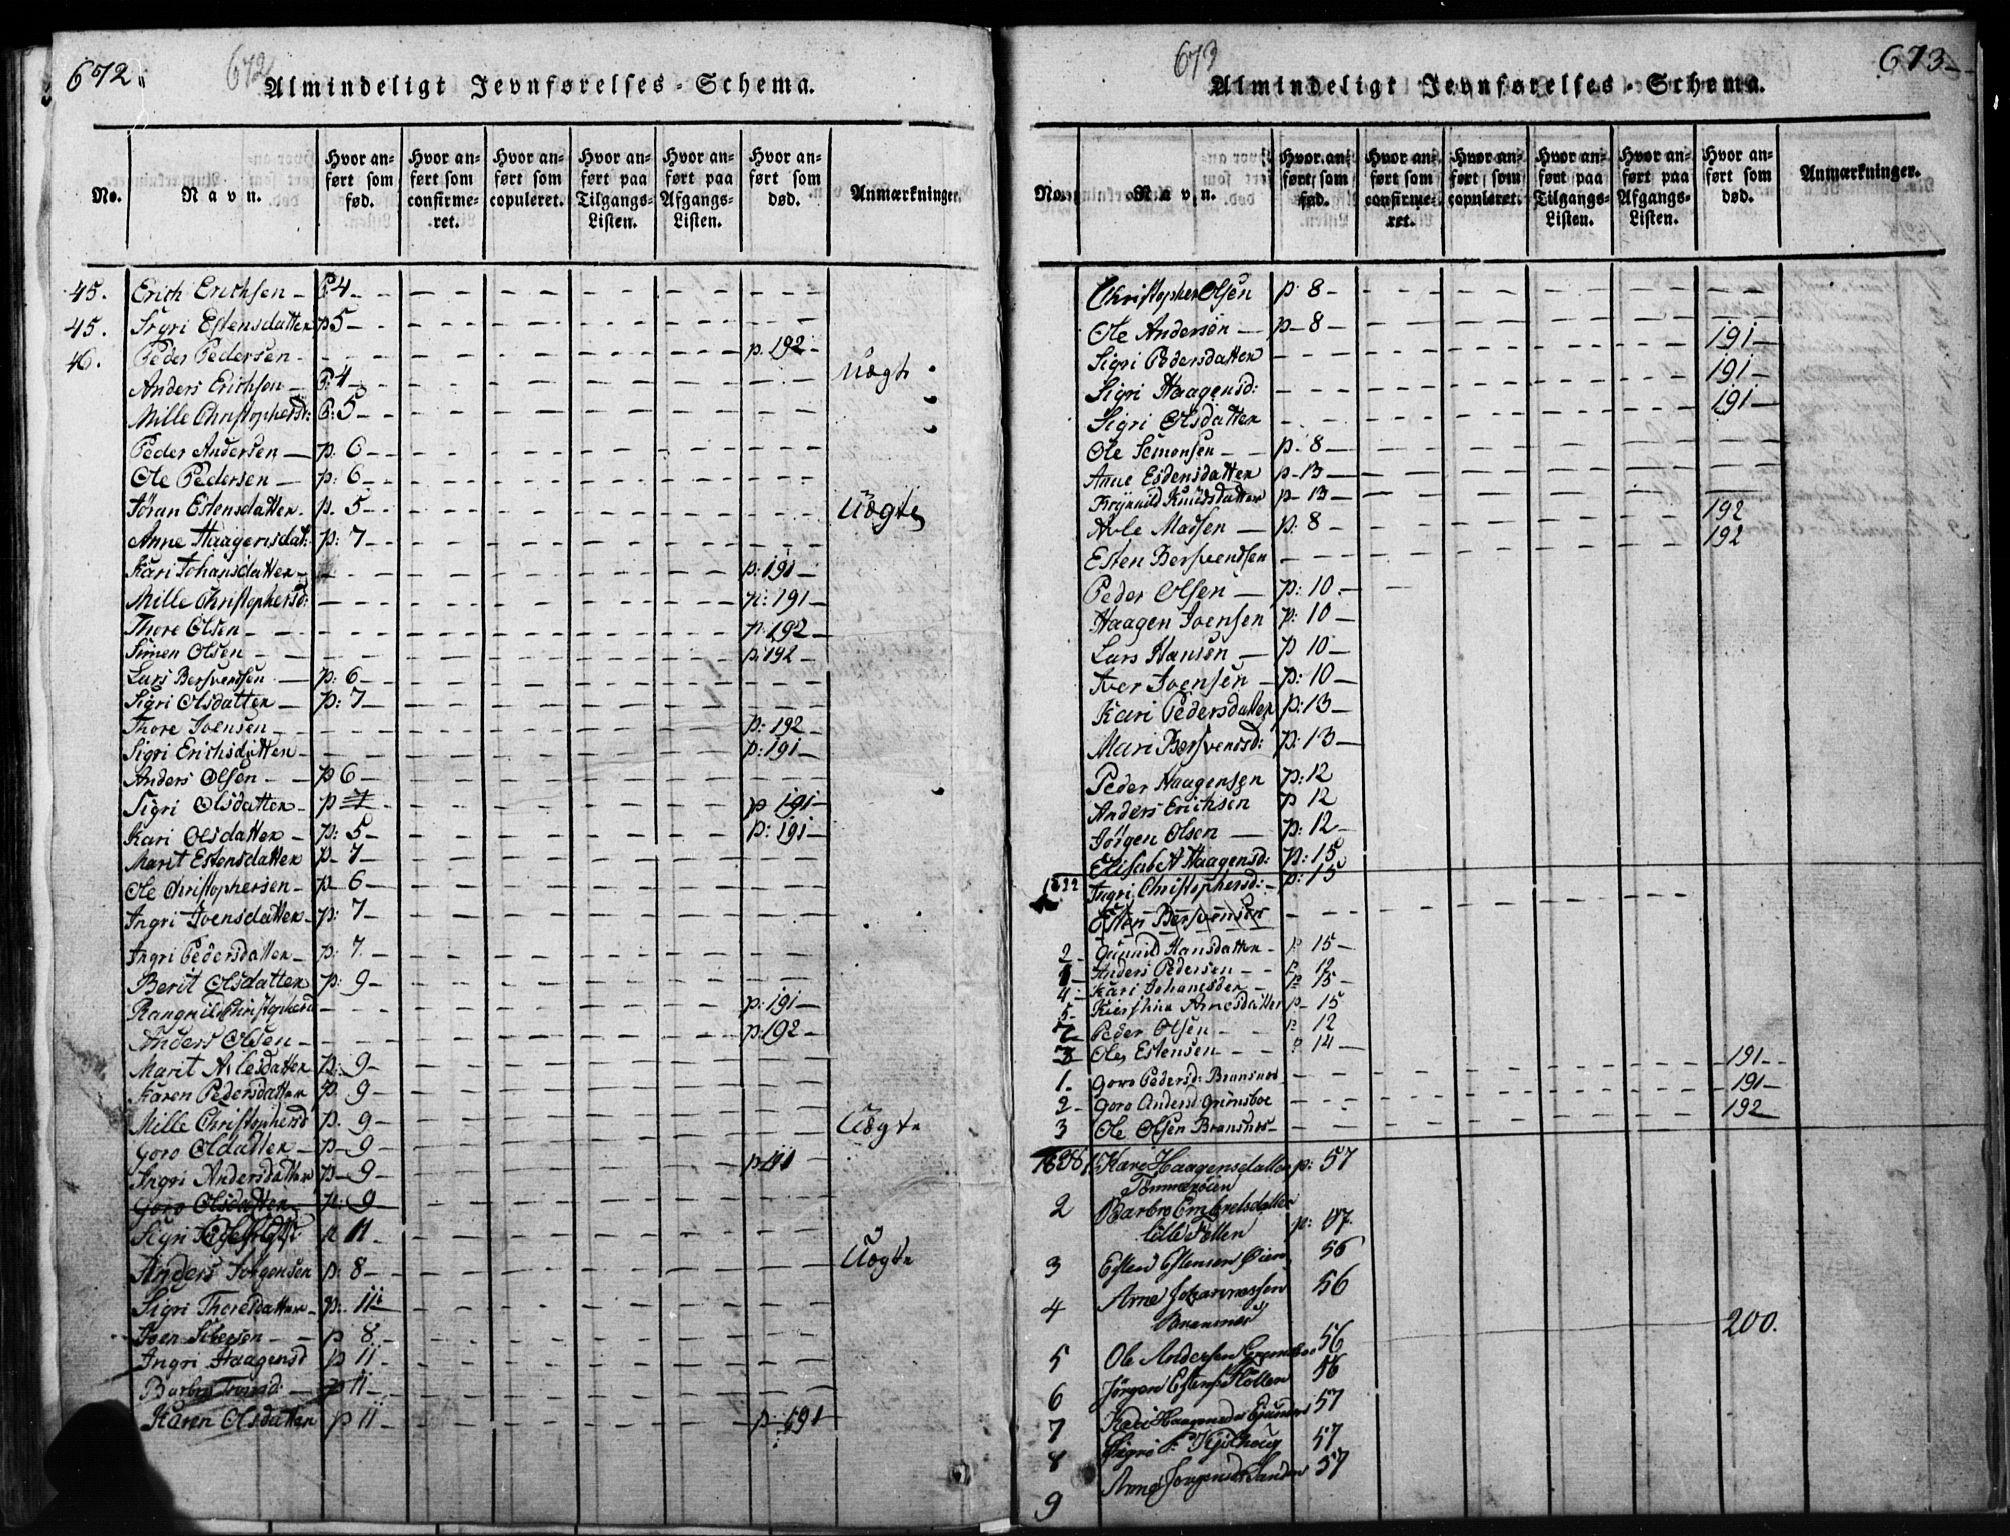 672.
672
Almindeligt Jevnførelses-Schema.
No.
Navn.
Hvor anført som fød.
Hvor anført som confirmeret.
Hvor anført som copuleret.
Hvor anført paa Tilgangs-Listen.
Hvor anført paa Afgangs-Listen.
Hvor anført som død.
Anmærkninger.
45. Erich Erichsen P. 4
45. Sigri Estensdatter p 5
46. Peder Pedersen p. 192
Anders Erichsen P. 4 Uægte
Mille Christophersd: P: 5
Peder Andersen p. 6
Ole Pedersen p: 6
Jöran Estensdatter p. 5 Uægte
Anne Haagensdat: p: 7
Kari Johansdatter p: 191
Mille Christophersd: p: 191
Thore Olsen p. 192
Simen Olsen p: 192
Lars Bersvendsen p: 6
Sigri Olsdatter p: 7
Thore Joensen p: 192
Sigri Erichsdatter p: 191
Anders Olsen p 6
Sigri Olsdatter p 7 p 191
Kari Olsdatter p: 5 p: 191
Marit Estensdatter p 7
Ole Christophersen p 6
Ingri Joensdatter p: 7
Ingri Pedersdatter p: 7.
Berit Olsdatter p: 9
Rangnild Christophersd p: 191
Anders Olsen p: 192
Marit Arlesdatter p: 9
Karen Pedersdatter p. 9
Mille Christophersd p. 9 Uægte
Goro Oldatter p 9
Ingri Andersdatter p 9 p 191
Goro Olsdatter p: 9
Sigri p 11
Anders Jörgensen p: 8 Uægte
Sigri Thoresdatter p. 11
Joen Siversen p 8
Ingri Haagensd p 11
Barbro p 11
Karen Olsdatter p 11 p. 191
673
673
Almindeligt Jevnførelses-Schema.
No.
Navn.
Hvor anført som fød.
Hvor anført som confirmeret.
Hvor anført som copuleret.
Hvor anført paa Tilgangs-Listen.
Hvor anført paa Afgangs-Listen.
Hvor anført som død.
Anmærkninger.
Christopher Olsen p. 8
Ole Andersön p 8
Sigri Pedersdatter 191
Sigri Haagensd: 191
Sigri Olsdatter 191
Ole Semonsen p. 8
Anne Esdensdatter p 13
Knudsdatter p 13
Arle Madsen p: 8 192
Esten Bersvendsen 192
Peder Olsen p: 10
Haagen Joensen p: 10
Lars Hansen p 10
Iver Joensen p: 10
Kari Pedersdatter p: 13
Mari Bersvensd: p: 13
Peder Haagensen p: 12
Anders Erichsen p 12
Jörgen Olsen p: 12
Elisabet Haagensd: p: 15
1822 Ingri Christophersd: p: 15
Esten Bersvensen
2 Gunnild Hansdatter p 15
1 Anders Pedersen p 12
4 Kari Johanesder p 15
5 Kierstine Arnesdatter p 15
2 Peder Olsen p 12
3 Ole Estensen p 14
1. Goro Pedersd: Bransnes 191
2 Goro Andersd Grimsboe 191
3 Ole Olsen Bransnes 192
1838 1 Kari Haagensdatter p: 57
Tömmeröien
2 Barbro Embretsdatter
lille Follen p: 57.
3 Esten Estensen Øien 56
4 Arne Johannessen 56
200.
5 Ole Andersen Gremsboe 56
6 Jörgen Estens. Follen 56
7 Kari Haagensd 57
8 57
9 Anne Jörgensd Sanden 57